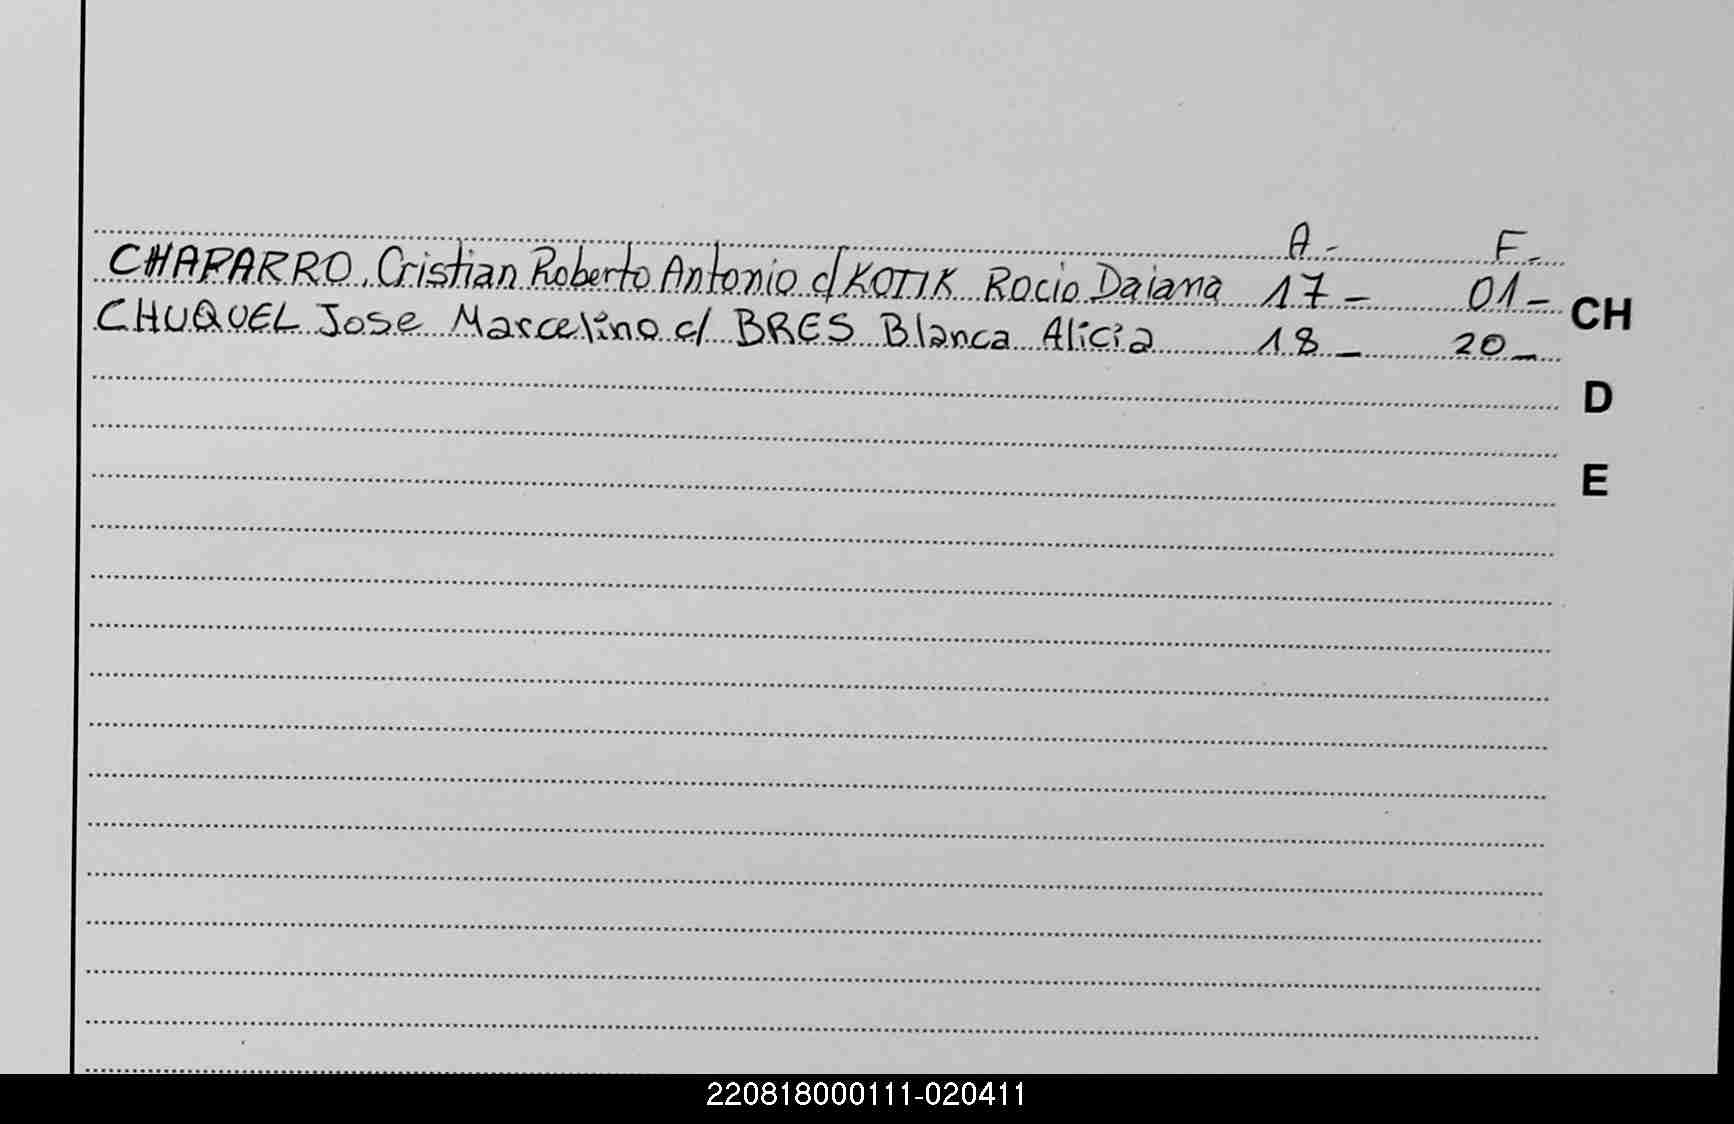 A.- F.-
CHAPARRO, Cristian Roberto Antonio c/ KOTIK Rocio Daiana 17- 01-
CHUQUEL Jose Marcelino c/ BRES Blanca Alicia 18- 20-
CH
D
E
220818000111-020411